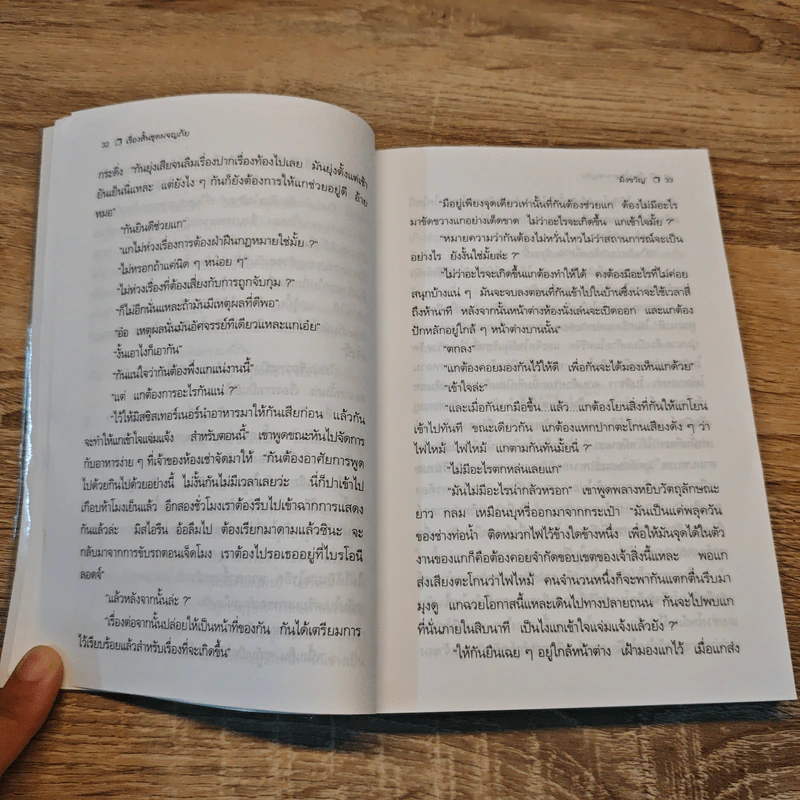 32 ❐ เรื่องสั้นชุดผจญภัย
กระดิ่ง "กันยุ่งเสียจนลืมเรื่องปากเรื่องท้องไปเลย มันยุ่งตั้งแต่เช้า
ยันเย็นนี่แหละ แต่ยังไง ๆ กันก็ยังต้องการให้แกช่วยอยู่ดี อ้าย
หมอ"
"กันยินดีช่วยแก"
"แกไม่ห่วงเรื่องการต้องฝ่าฝืนกฎหมายใช่มั้ย ?"
"ไม่หรอกถ้าแค่นิด ๆ หน่อย ๆ"
"ไม่ห่วงเรื่องที่ต้องเสี่ยงกับการถูกจับกุม ?"
"ก็ไม่อีกนั่นแหละถ้ามันมีเหตุผลที่ดีพอ"
"อ๋อ เหตุผลนั่นมันอัศจรรย์ทีเดียวแหละแกเอ๋ย"
"งั้นเอาไงก็เอากัน"
"กันแน่ใจว่ากันต้องพึ่งแกแน่งานนี้"
"แต่ แกต้องการอะไรกันแน่ ?"
"ไว้ให้มิสซิสเทอร์เนอร์นำอาหารมาให้กันเสียก่อน แล้วกัน
จะทำให้แกเข้าใจแจ่มแจ้ง สำหรับตอนนี้" เขาพูดขณะหันไปจัดการ
กับอาหารง่าย ๆ ที่เจ้าของห้องเช่าจัดมาให้ "กันต้องอาศัยการพูด
ไปด้วยกินไปด้วยอย่างนี้ ไม่งั้นกันไม่มีเวลาเลยว่ะ นี่ก็ปาเข้าไป
เกือบห้าโมงเย็นแล้ว อีกสองชั่วโมงเราต้องรีบไปเข้าฉากการแสดง
กันแล้วล่ะ มิสไอรีน อ้อลืมไป ต้องเรียกมาดามแล้วซินะ จะ
กลับมาจากการขับรถตอนเจ็ดโมง เราต้องไปรอเธออยู่ที่ไบรโอนี
ลอดจ์"
"แล้วหลังจากนั้นล่ะ ?"
"เรื่องต่อจากนั้นปล่อยให้เป็นหน้าที่ของกัน กันได้เตรียมการ
ไว้เรียบร้อยแล้วสำหรับเรื่องที่จะเกิดขึ้น"
มิ่งขวัญ ❐ 33
"มีอยู่เพียงจุดเดียวเท่านั้นที่กันต้องช่วยแก ต้องไม่มีอะไร
มาขัดขวางแกอย่างเด็ดขาด ไม่ว่าอะไรจะเกิดขึ้น แกเข้าใจมั้ย ?"
"หมายความว่ากันต้องไม่หวั่นไหวไม่ว่าสถานการณ์จะเป็น
อย่างไร ยังงั้นใช่มั้ยล่ะ ?"
"ไม่ว่าอะไรจะเกิดขึ้นแกต้องทำให้ได้ คงต้องมีอะไรที่ไม่ค่อย
สนุกบ้างแน่ ๆ มันจะจบลงตอนที่กันเข้าไปในบ้านซึ่งน่าจะใช้เวลาสี่
ถึงห้านาที หลังจากนั้นหน้าต่างห้องนั่งเล่นจะเปิดออก และแกต้อง
ปักหลักอยู่ใกล้ ๆ หน้าต่างบานนั้น"
"ตกลง"
"แกต้องคอยมองกันไว้ให้ดี เพื่อกันจะได้มองเห็นแกด้วย"
"เข้าใจล่ะ"
"และเมื่อกันยกมือขึ้น แล้ว แกต้องโยนสิ่งที่กันให้แกโยน
เข้าไปทันที ขณะเดียวกัน แกต้องแหกปากตะโกนเสียงดัง ๆ ว่า
ไฟไหม้ ไฟไหม้ แกตามกันทันมั้ยนี่ ?"
"ไม่มีอะไรตกหล่นเลยแก"
"มันไม่มีอะไรน่ากลัวหรอก" เขาพูดพลางหยิบวัตถุลักษณะ
ยาว กลม เหมือนบุหรี่ออกมาจากกระเป๋า "มันเป็นแค่พลุควัน
ของช่างท่อน้ำ ติดหมวกไฟไว้ข้างใดข้างหนึ่ง เพื่อให้มันจุดได้ในตัว
งานของแกก็คือต้องคอยจำกัดขอบเขตของเจ้าสิ่งนี้แหละ พอแก
ส่งเสียงตะโกนว่าไฟไหม้ คนจำนวนหนึ่งก็จะพากันแตกตื่นรีบมา
มุงดู แกฉวยโอกาสนี้แหละเดินไปทางปลายถนน กันจะไปพบแก
ที่นั่นภายในสิบนาที เป็นไงแกเข้าใจแจ่มแจ้งแล้วยัง ?"
"ให้กันยืนเฉย ๆ อยู่ใกล้หน้าต่าง เฝ้ามองแกไว้ เมื่อแกส่ง